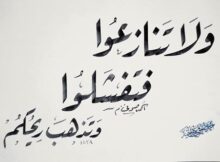 وَلَا تَنَازَعُوا
فَتَفْشَلُوا
وَتَذْهَبَ رِيحُكُمْ